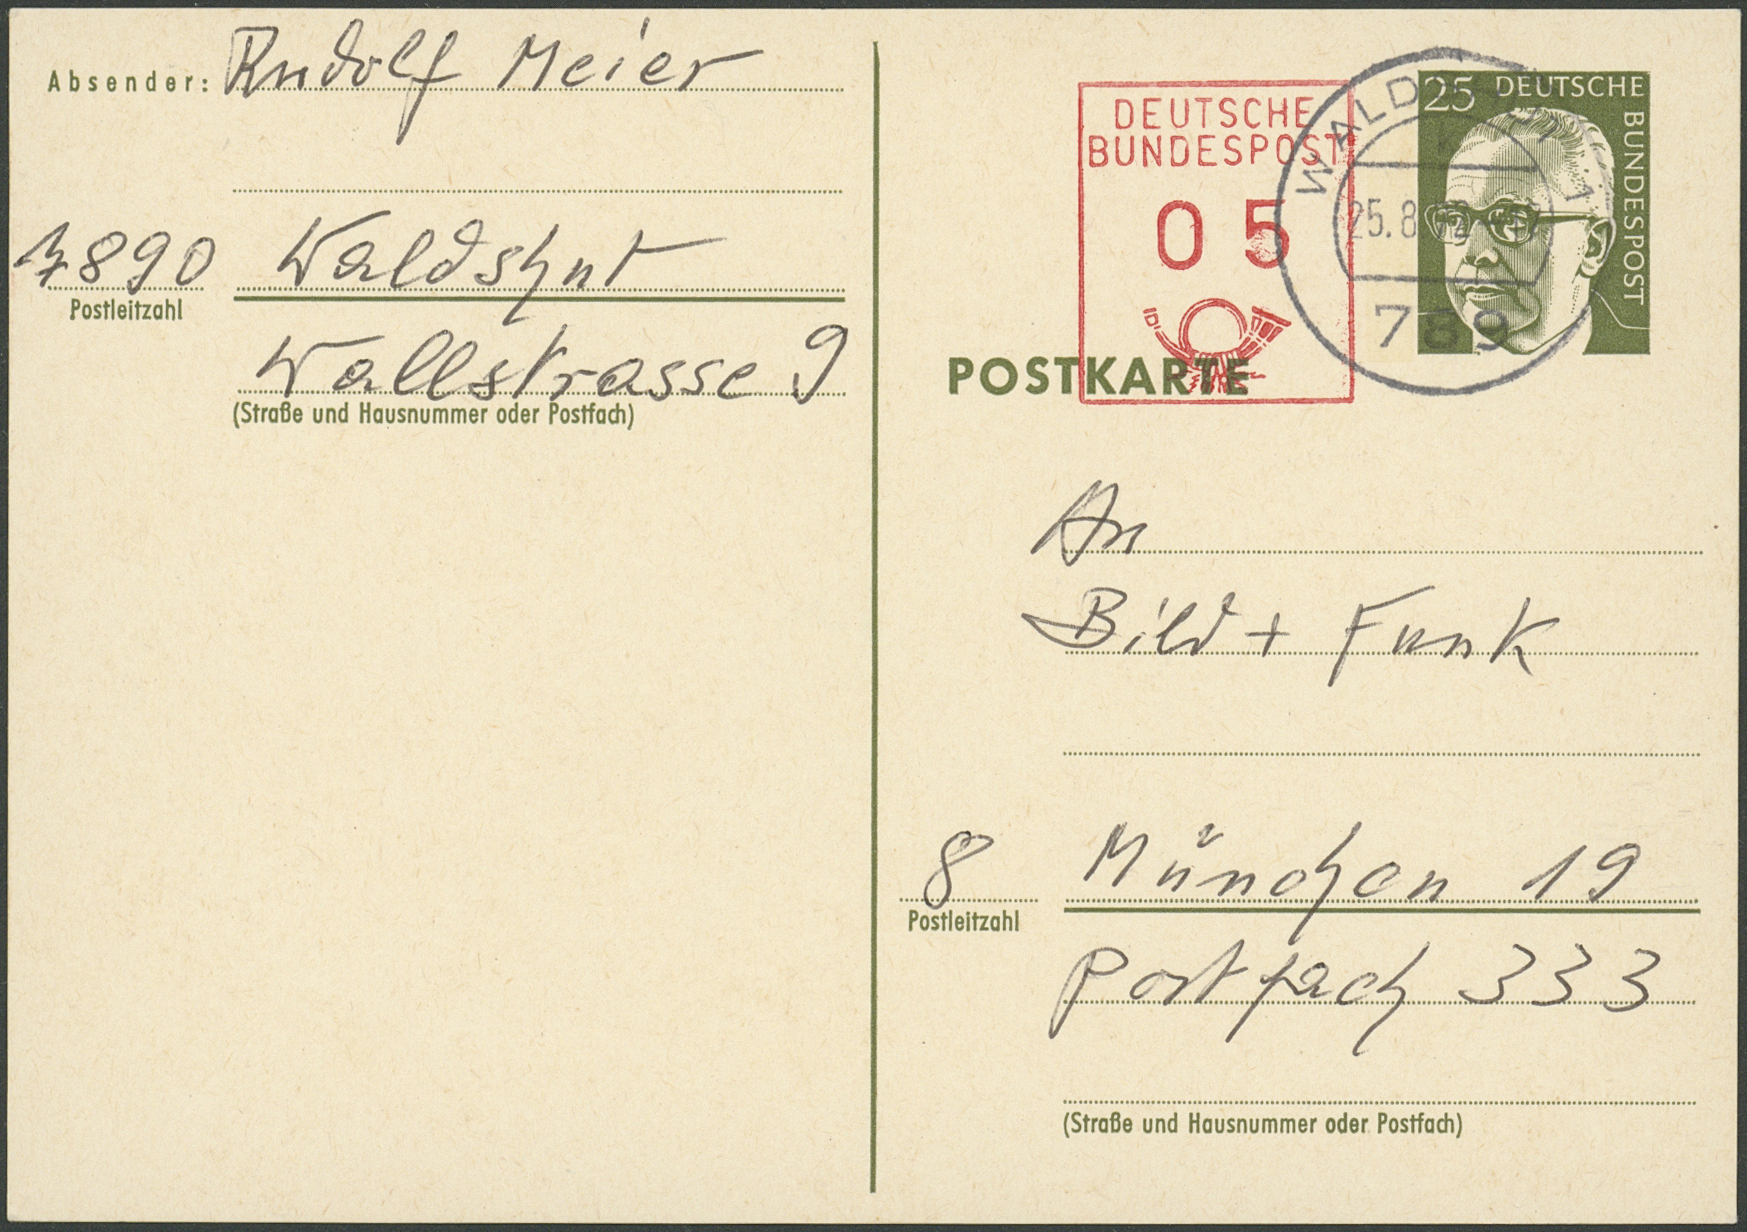 Absender: Rudolf Meier
7890 Waldshut
Postleitzahl
Wallstrasse 9
(Straße und Hausnummer oder Postfach)
DEUTSCHE
BUNDESPOST
0 5
25 DEUTSCHE
BUNDESPOST
25.8
789
POSTKARTE
An
Bild + Funk
8 München 19
Postleitzahl
Postfach 333
(Straße und Hausnummer oder Postfach)